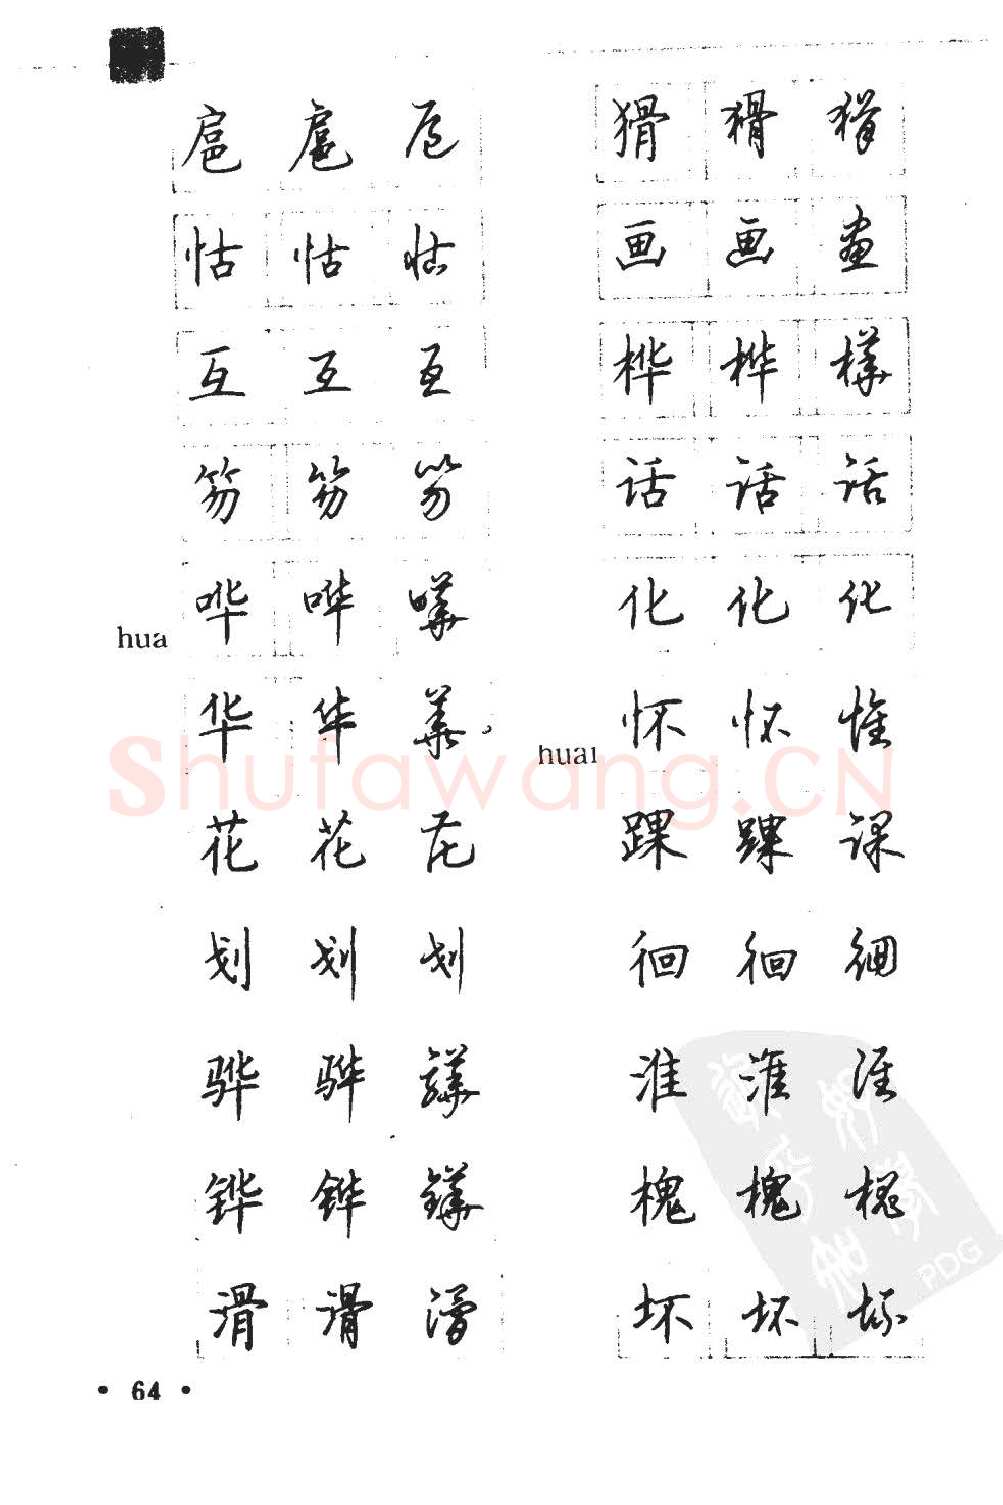 扈 扈 扈
怙 怙 怙
互 互 互
笏 笏 笏
hua
哗 哗 嘩
华 华 華
花 花 花
划 划 划
骅 骅 驊
铧 铧 鏵
滑 滑 滑
猾 猾 猾
画 画 畫
桦 桦 樺
话 话 话
化 化 化
huai
怀 怀 懷
踝 踝 踝
徊 徊 徊
淮 淮 淮
槐 槐 槐
坏 坏 坏
• 64 •
Shufawang.CN
PDG